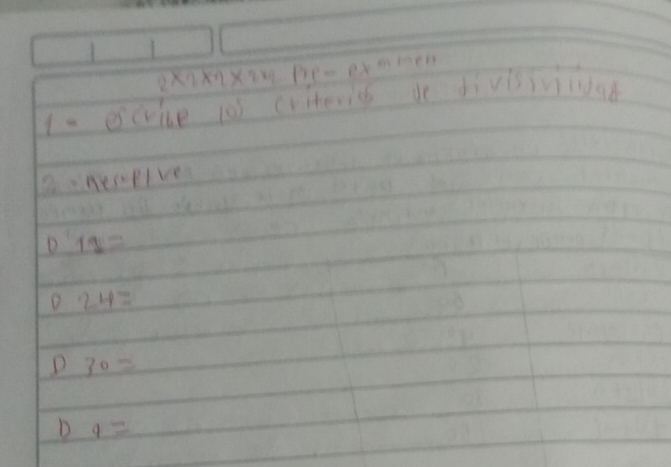 Pre-examen
1= escribe los criterios de divisivilidad
2= Resuelve
D 24=
D 30=
D 9=